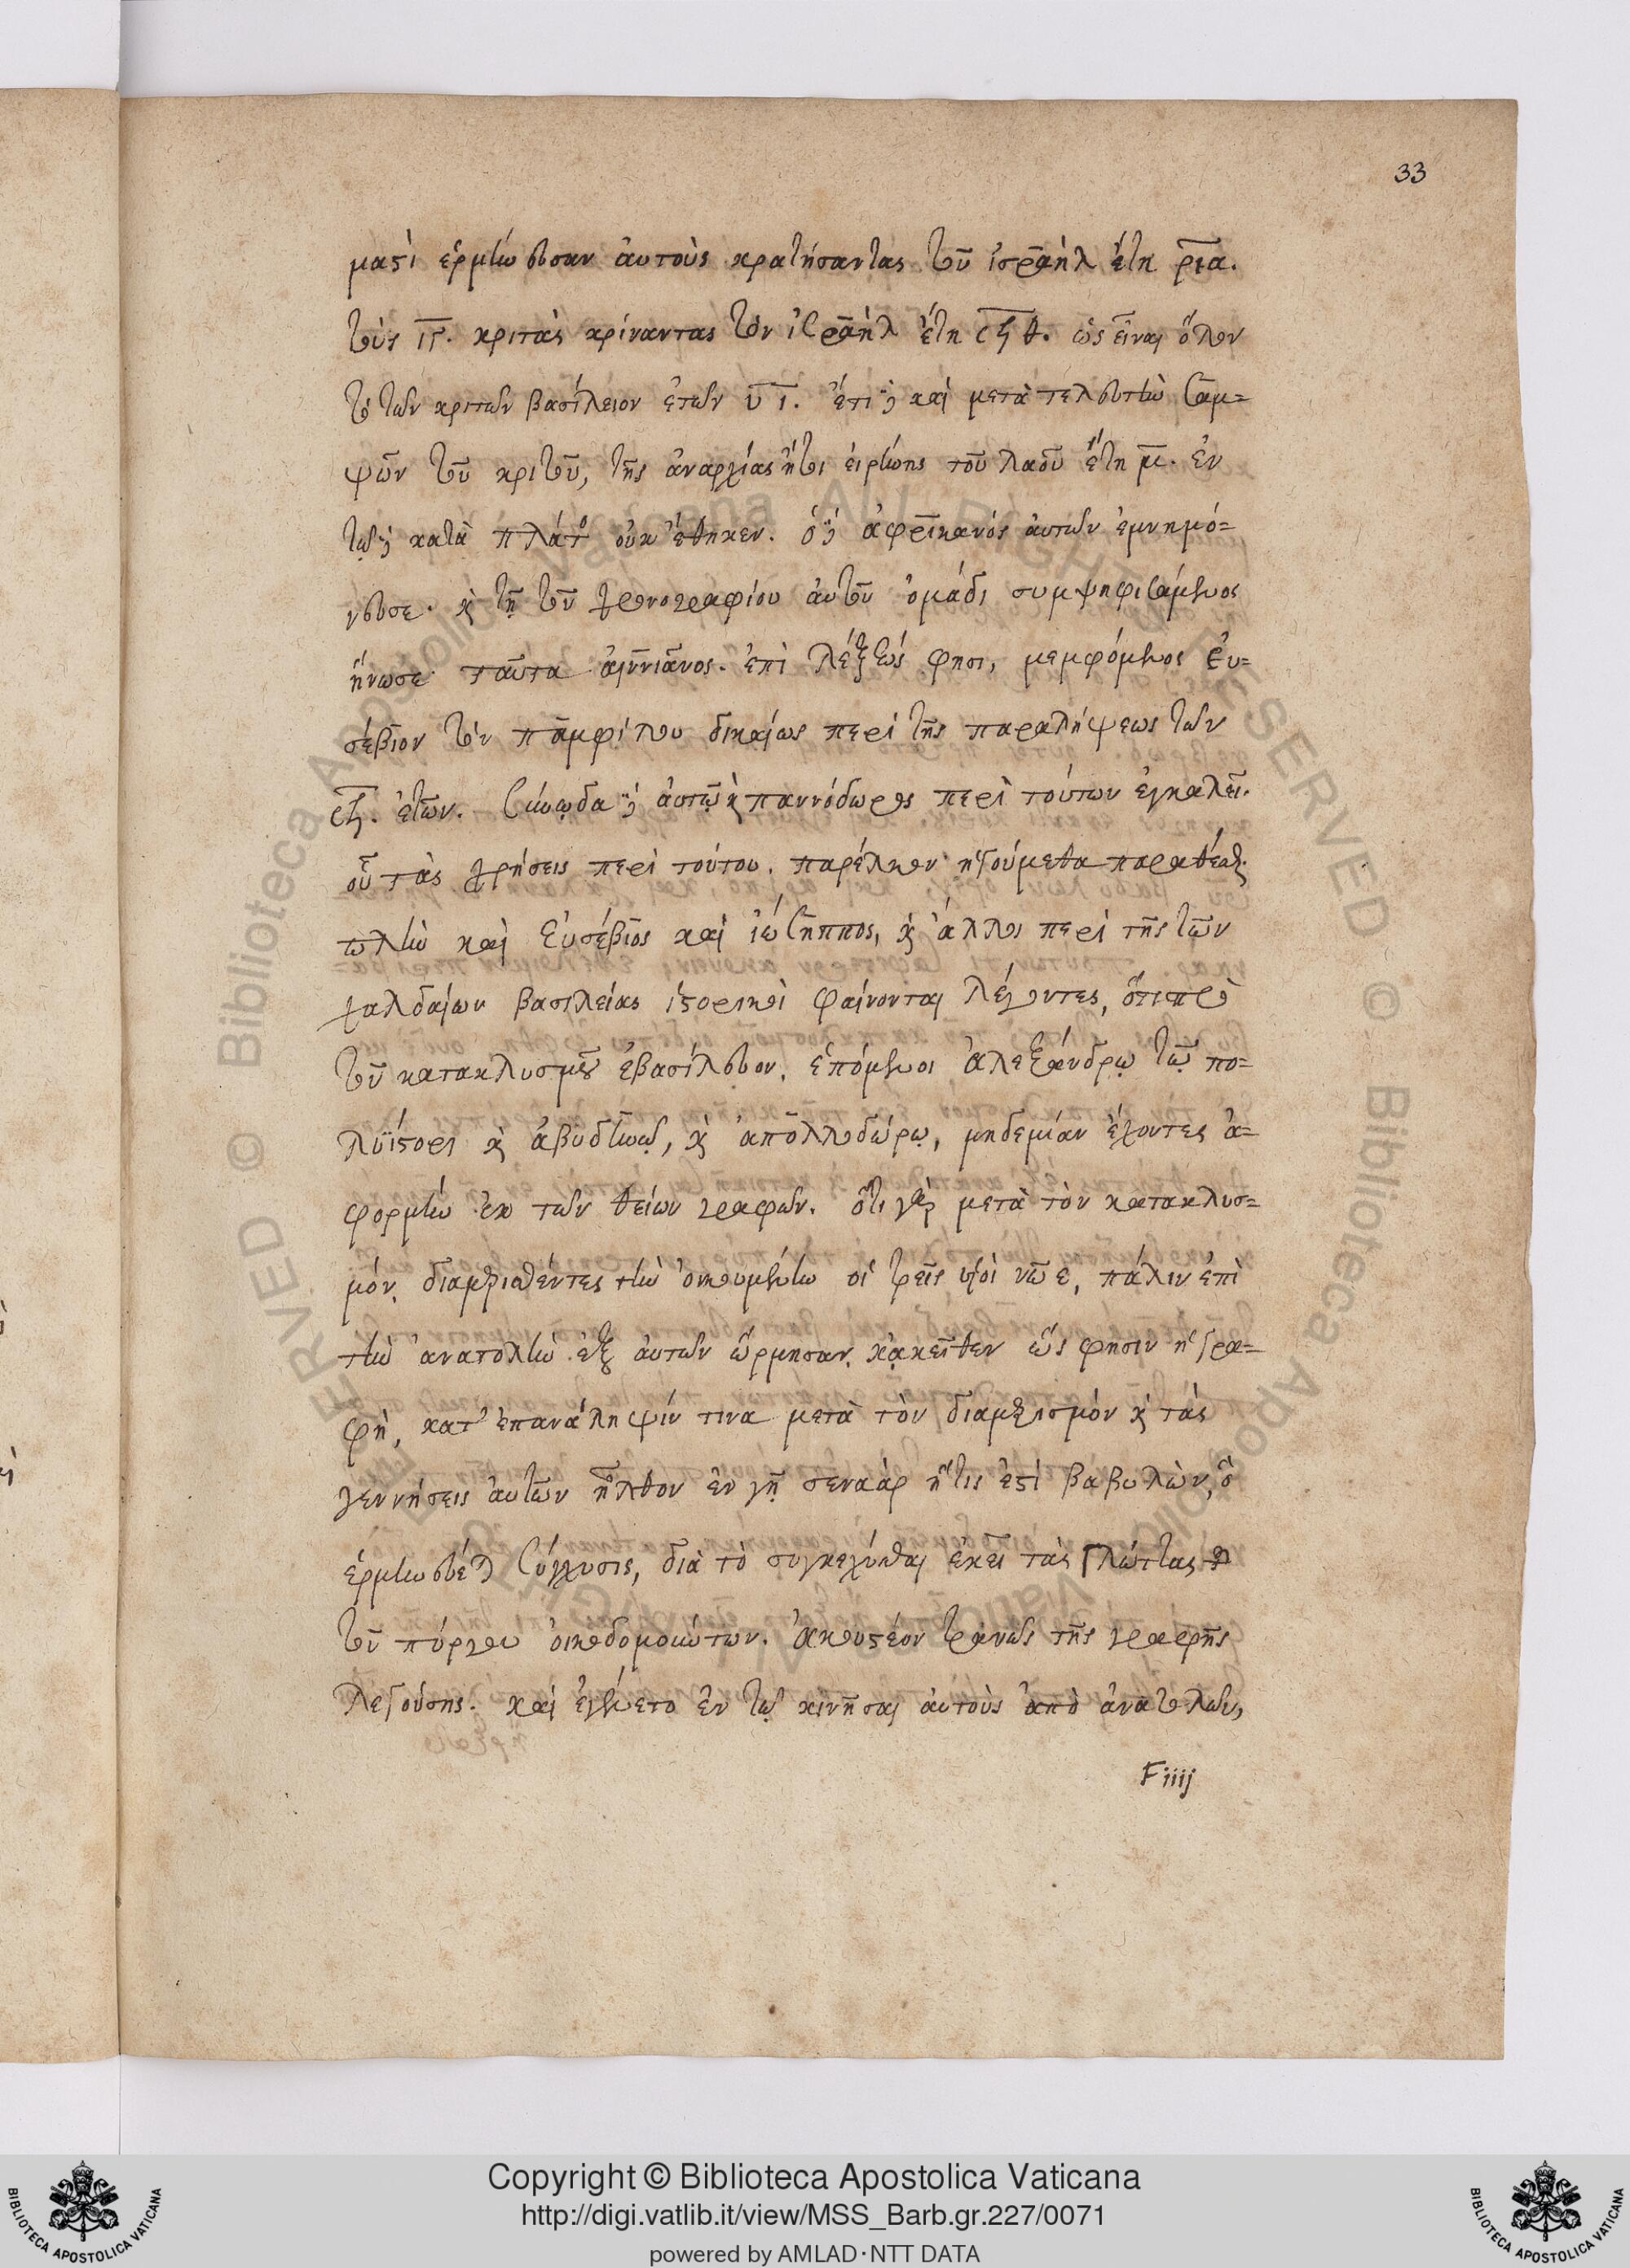 33
μαστὶ ἑρμήνευσαν αὐτοὺς κρατήσαντας τοῦ ἰσραὴλ ἔτη ρια.
τοὺς ιγ. κριτὰς κρίναντας τὸν ἰσραὴλ ἔτη σϟθ. ὡς εἶναι ὅλον
τὸ τῶν κριτῶν βασίλειον ἐτῶν υι. ἔτι δὲ καὶ μετὰ τελευτὴν σαμ=
ψὼν τοῦ κριτοῦ, τῆς ἀναρχίας ἤτοι εἰρήνης τοῦ λαοῦ ἔτη μ. ἐν
τῷ δὲ κατὰ πλάτος οὐκ ἔθηκεν. ὁ δὲ ἀφρικανὸς αὐτῶν ἐμνημό=
νευσε. καὶ τῇ τοῦ χρονογραφίου αὐτοῦ ὁμάδι συμψηφισάμενος
ἥνωσε ταῦτα ἀννιανὸς. ἐπὶ λέξεώς φησι, μεμφόμενος εὐ=
σέβιον τὸν παμφίλου δικαίως περὶ τῆς παραλήψεως τῶν
σϟ. ἐτῶν. συνῳδὰ δὲ αὐτῷ καὶ παννόδωρος περὶ τούτων ἐγκαλεῖ.
οὗ τὰς χρήσεις περὶ τούτου. παρέλκον ἡγούμεθα παραθέσθαι.
πλὴν καὶ εὐσέβιος καὶ ἰώσηππος, καὶ ἄλλοι περὶ τῆς τῶν
χαλδαίων βασιλείας ἱστορικοὶ φαίνονται λέγοντες, ὅτι πρὸ
τοῦ κατακλυσμοῦ ἐβασίλευον, ἑπόμενοι ἀλεξάνδρῳ τῷ πο=
λυίστορι καὶ ἀβυδηνῷ, καὶ ἀπολλοδώρῳ, μηδεμίαν ἔχοντες ἀ=
φορμὴν ἐκ τῶν θείων γραφῶν. ὅτι γὰρ μετὰ τὸν κατακλυσ=
μὸν, διαμερισθέντες τὴν οἰκουμένην οἱ τρεῖς υἱοὶ νῶε, πάλιν ἐπὶ
τὴν ἀνατολὴν ἐξ αὐτῶν ὥρμησαν, κἀκεῖθεν ὥς φησιν ἡ γρα=
φὴ, κατ' ἐπανάληψίν τινα μετὰ τὸν διαμερισμὸν καὶ τὰς
γεννήσεις αὐτῶν ἦλθον ἐν γῇ σεναὰρ ἥτις ἐστὶ βαβυλὼν, ὃ
ἑρμηνεύεται σύγχυσις, διὰ τὸ συγκεχύσθαι ἐκεῖ τὰς γλώττας τῶν
τοῦ πύργου οἰκοδομούντων. ἀκουστέον τρανῶς τῆς γραφῆς
λεγούσης. καὶ ἐγένετο ἐν τῷ κινῆσαι αὐτοὺς ἀπὸ ἀνατολῶν,
Fiiij
Copyright © Biblioteca Apostolica Vaticana
http://digi.vatlib.it/view/MSS_Barb.gr.227/0071
powered by AMLAD·NTT DATA